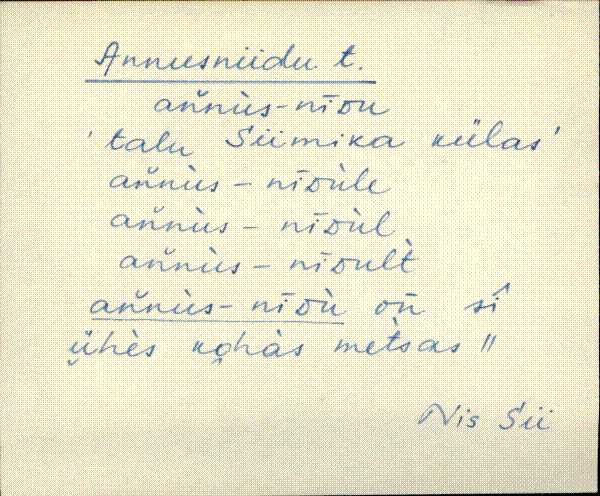 Annusniidu t.
an̆nùs-nīᴅu
'talu Siimika külas'
an̆nùs – nīᴅùle
an̆nùs – nīᴅùl
an̆nùs – nīᴅult̀
an̆nùs-nīᴅù on̄ sî
ṻhès kǫhàs mèt̀sas "
Nis Sii